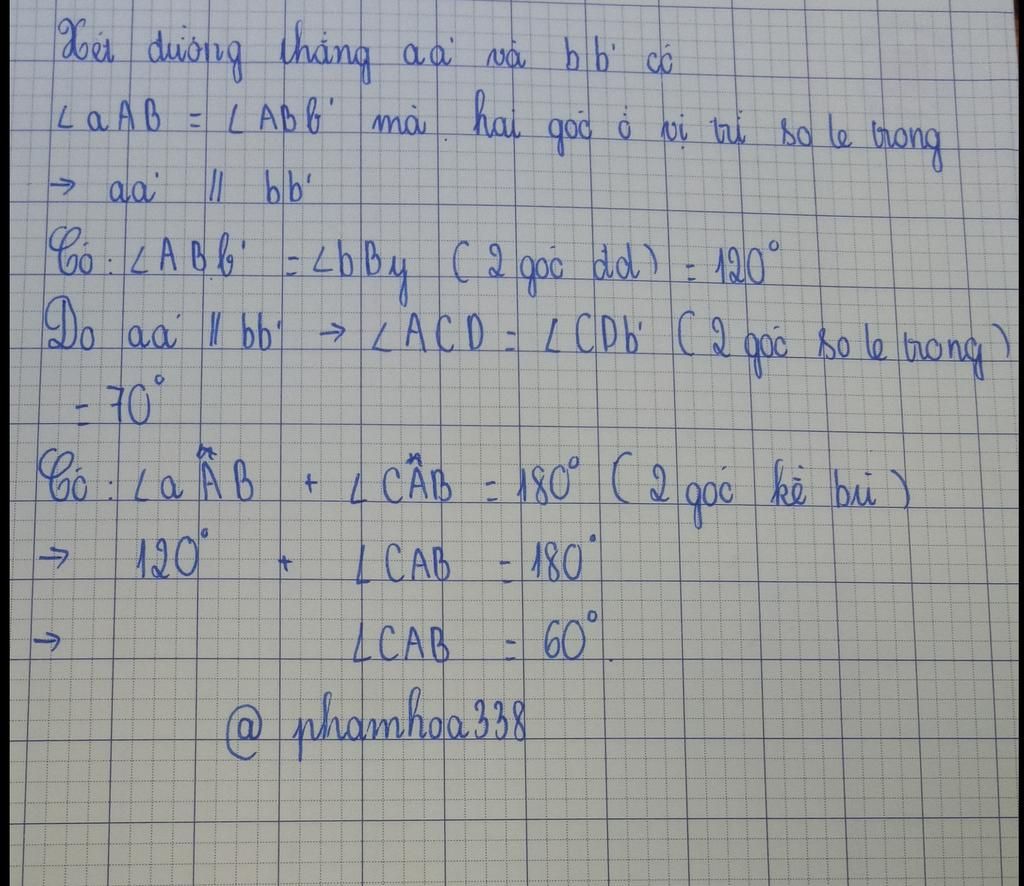 Xét đường thẳng aa' và bb' có
∠aAB = ∠ABb' mà hai góc ở vị trí so le trong
→ aa' // bb'
Có: ∠ABb' = ∠bBy (2 góc đđ) = 120°
Do aa' // bb' → ∠ACD = ∠CDb' (2 góc so le trong)
= 70°
Có: ∠aÂB + ∠CÂB = 180° (2 góc kề bù)
→ 120° + ∠CAB = 180°
→ ∠CAB = 60°
@ phamhoa338